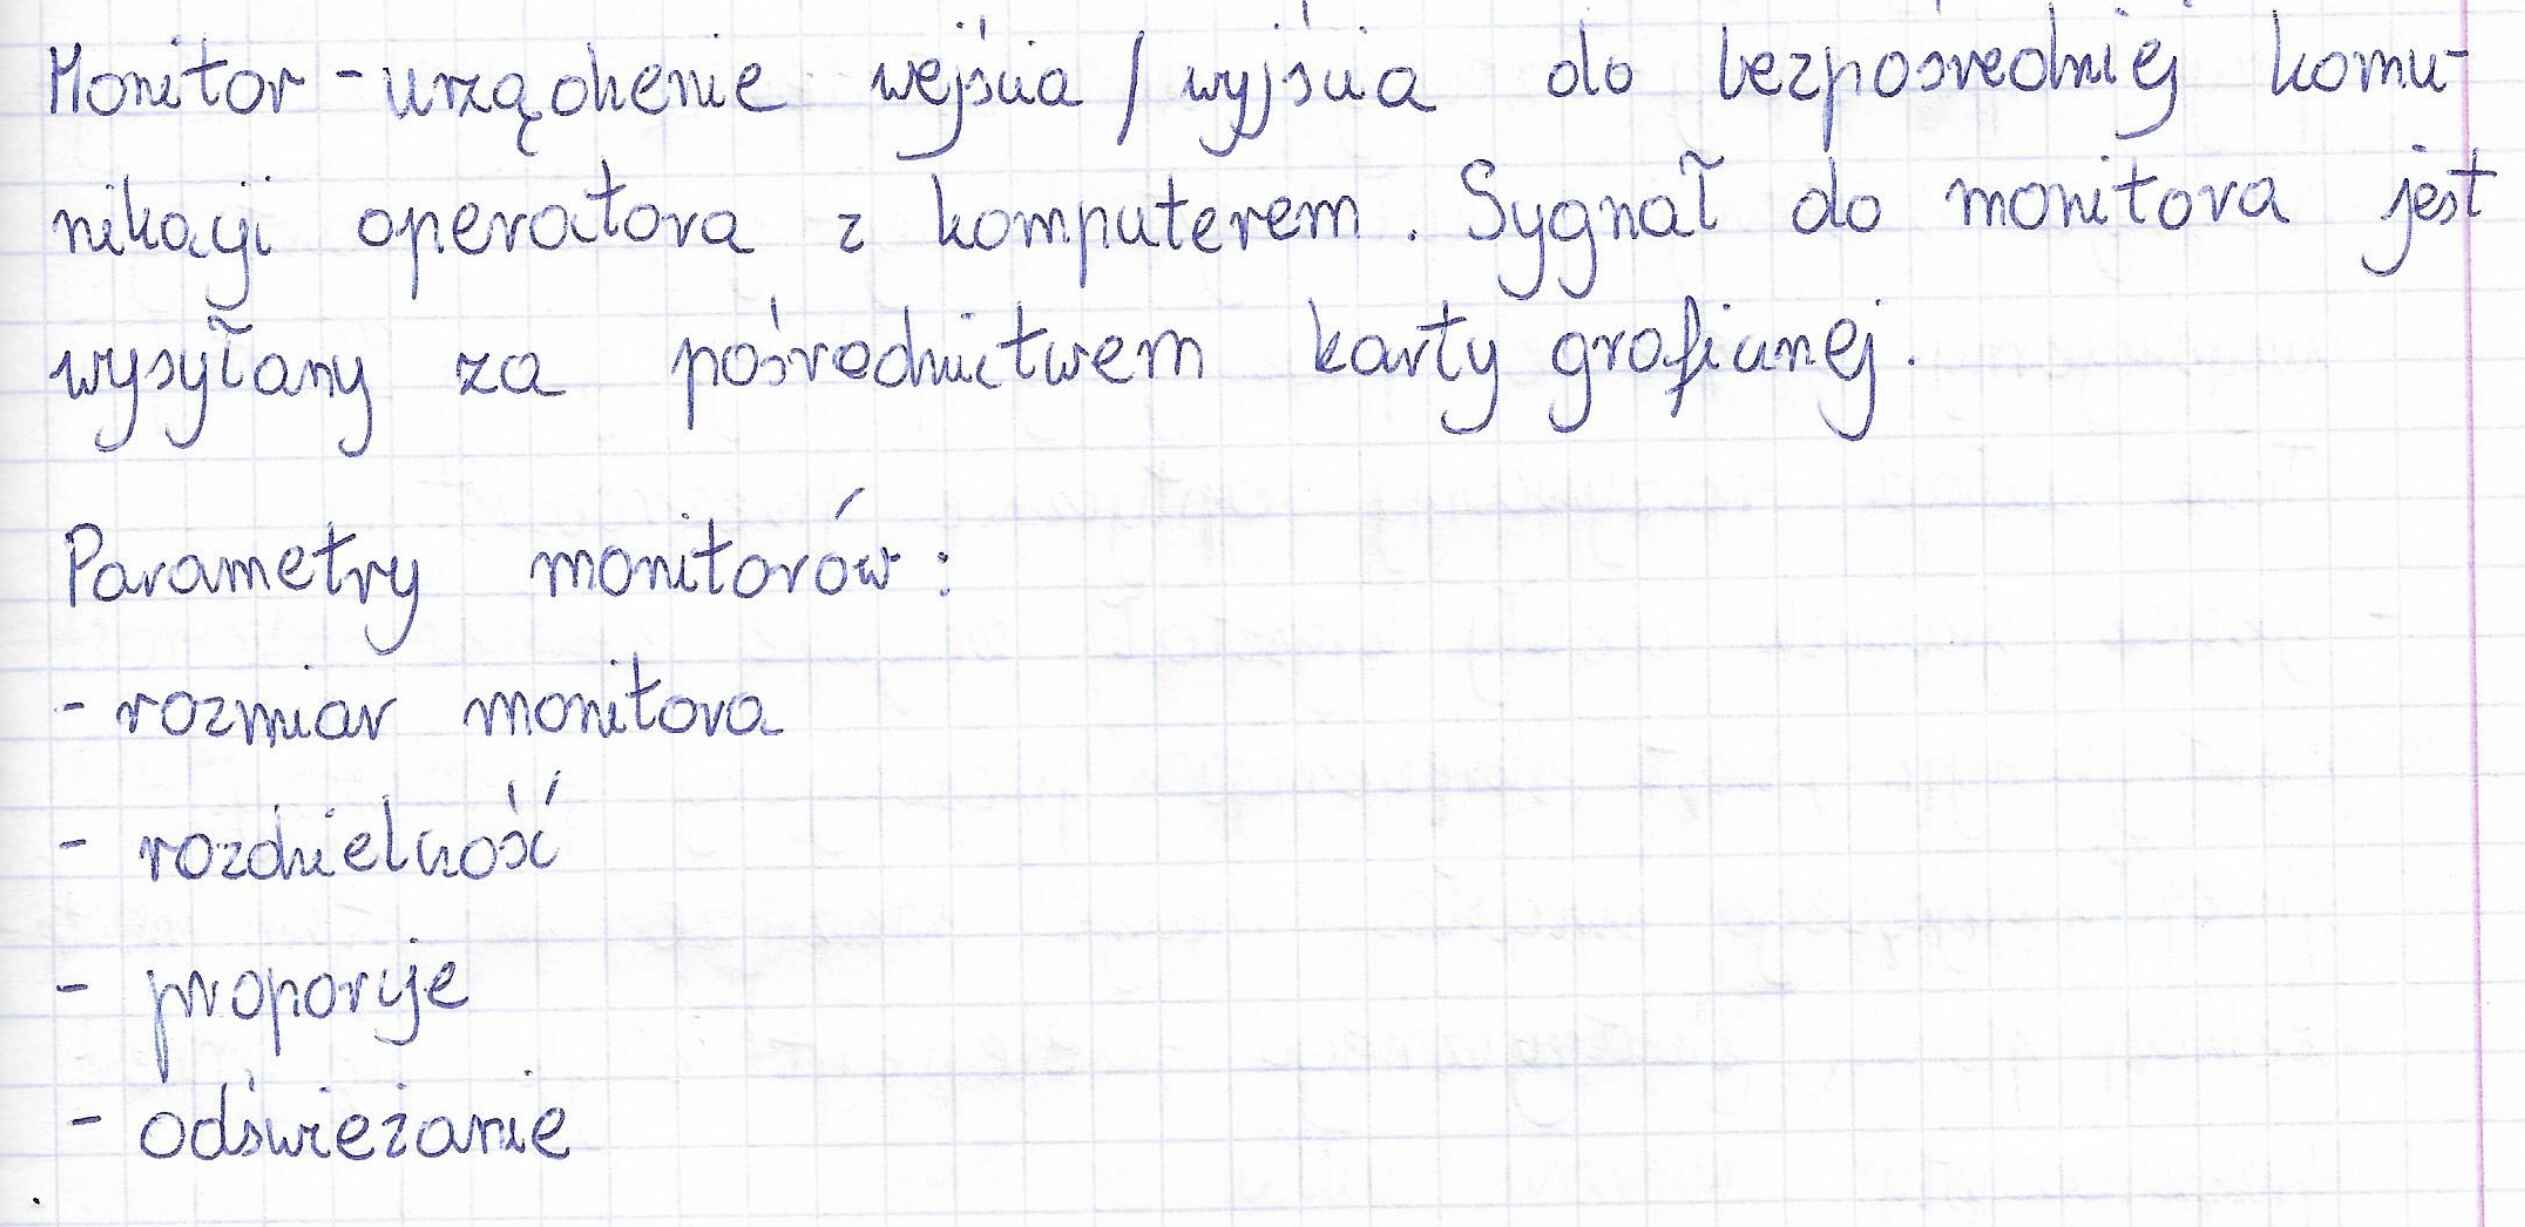 Monitor - urządzenie wejścia / wyjścia do bezpośredniej komu-
nikacji operatora z komputerem. Sygnał do monitora jest
wysyłany za pośrednictwem karty graficznej.
Parametry monitorów:
- rozmiar monitora
- rozdzielność
- proporcje
- odświeżanie